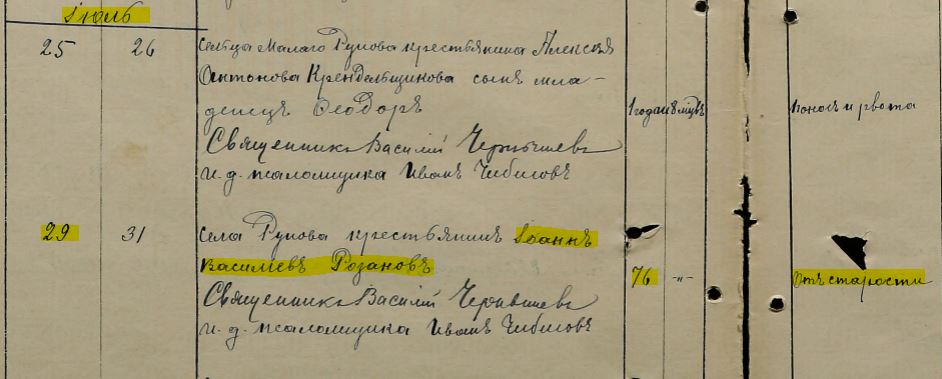 Іюль
25 26 Сельца Малаго Рунова крестьянина Алексѣя
Антонова Крендельщикова сынъ мла-
денецъ Ѳеодоръ 1 годъ и 8 мцвъ Поносъ и рвота
Священникъ Василій Чернышевъ
и. д. псаломщика Иванъ Чибисовъ
29 31 Села Рунова крестьянинъ Іоаннъ
Василіевъ Розановъ 76 -"- Отъ старости
Священникъ Василій Чернышевъ
и. д. псаломщика Иванъ Чибисовъ